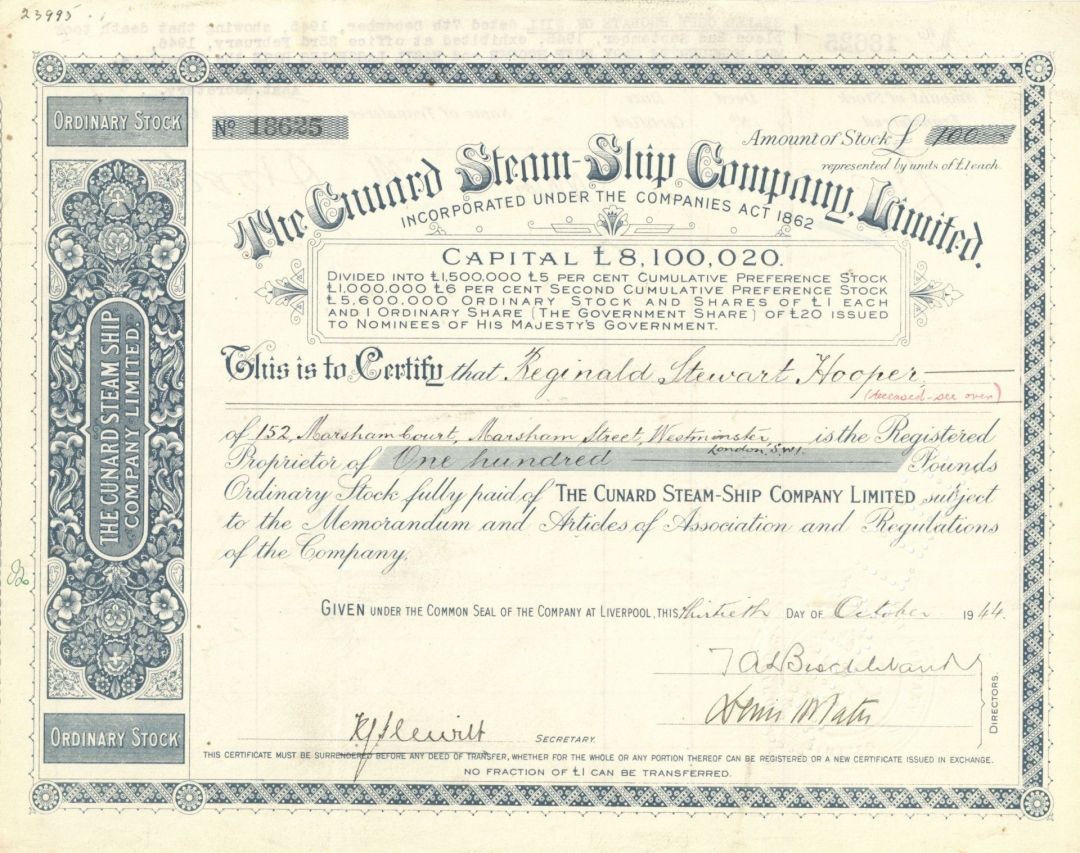 23995
ORDINARY STOCK
No 18625
Amount of Stock £ 100
represented by units of £1 each.
The Cunard Steam-Ship Company, Limited.
INCORPORATED UNDER THE COMPANIES ACT 1862
CAPITAL £8,100,020.
DIVIDED INTO £1,500,000 £5 PER CENT CUMULATIVE PREFERENCE STOCK
£1,000,000 £6 PER CENT SECOND CUMULATIVE PREFERENCE STOCK
£5,600,000 ORDINARY STOCK AND SHARES OF £1 EACH
AND 1 ORDINARY SHARE (THE GOVERNMENT SHARE) OF £20 ISSUED
TO NOMINEES OF HIS MAJESTY'S GOVERNMENT.
THE CUNARD STEAM SHIP
COMPANY LIMITED.
This is to Certify that Reginald Stewart Hooper
(deceased - see over)
of 152, Marsham Court, Marsham Street, Westminster, is the Registered
London, S.W.1.
Proprietor of One hundred Pounds
Ordinary Stock fully paid of THE CUNARD STEAM-SHIP COMPANY LIMITED subject
to the Memorandum and Articles of Association and Regulations
of the Company.
GIVEN UNDER THE COMMON SEAL OF THE COMPANY AT LIVERPOOL, THIS Thirtieth DAY OF October 1944.
DIRECTORS.
ORDINARY STOCK
SECRETARY.
THIS CERTIFICATE MUST BE SURRENDERED BEFORE ANY DEED OF TRANSFER, WHETHER FOR THE WHOLE OR ANY PORTION THEREOF CAN BE REGISTERED OR A NEW CERTIFICATE ISSUED IN EXCHANGE.
NO FRACTION OF £1 CAN BE TRANSFERRED.